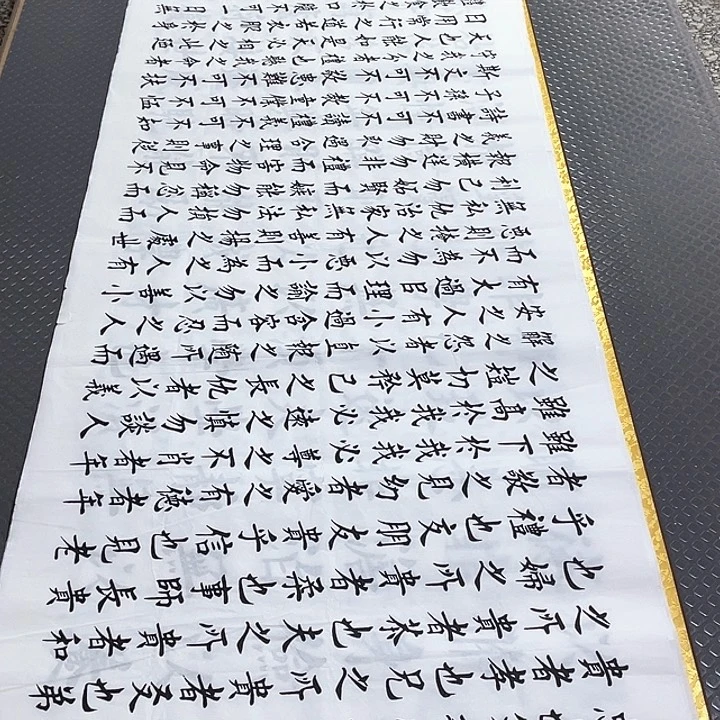 貴者孝也兄之所貴者友也弟
之所貴者恭也夫之所貴者和
也婦之所貴者柔也事師長貴
乎禮也交朋友貴乎信也見老
者敬之見幼者愛之有德者年
雖下於我我必尊之不肖者年
雖高於我我必遠之慎勿談人
之短切莫矜己之長仇者以義
解之怨者以直報之隨所遇而
安之人有小過含容而忍之人
有大過㠯理而諭之勿以善小
而不為勿以惡小而為之人有
惡則掩之人有善則揚之處世
無私仇治家無私法勿損人而
利己勿妒賢而嫉能勿稱忿而
報橫逆勿非禮而害物命見不
義之財勿取遇合理之事則從
詩書不可不讀禮義不可不知
子孫不可不教童僕不可不恤
斯文不可不敬患難不可不扶
守我之分者禮也聽我之命者
天也人能如是天必相之此廼
日用常行之道若衣服之於身